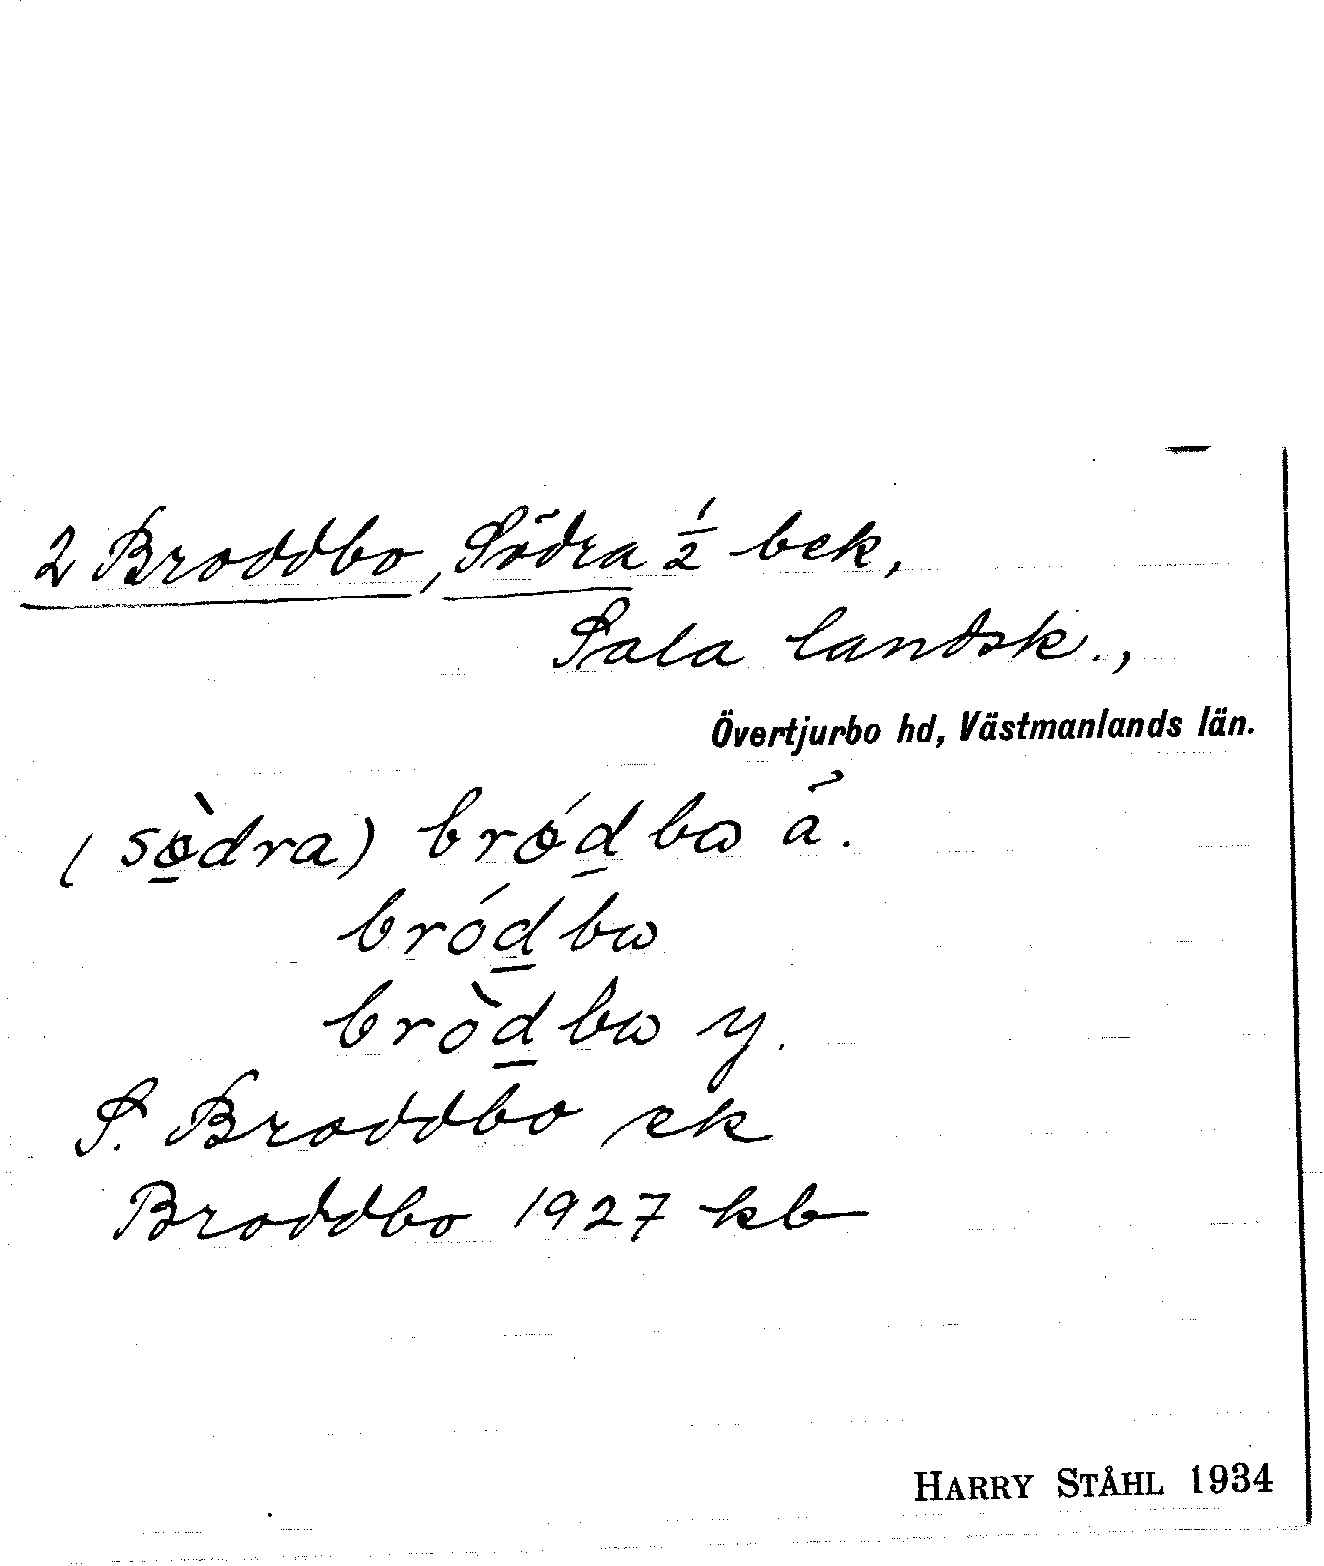 2 Broddbo, Södra 1/2 bek,
Sala landsk.,
Övertjurbo hd, Västmanlands län.
(sø̱̀dra) brǿḏbɷ ä́.
bróḏbɷ
bròḏbɷ y.
S. Broddbo ek
Broddbo 1927 kb
HARRY STÅHL 1934